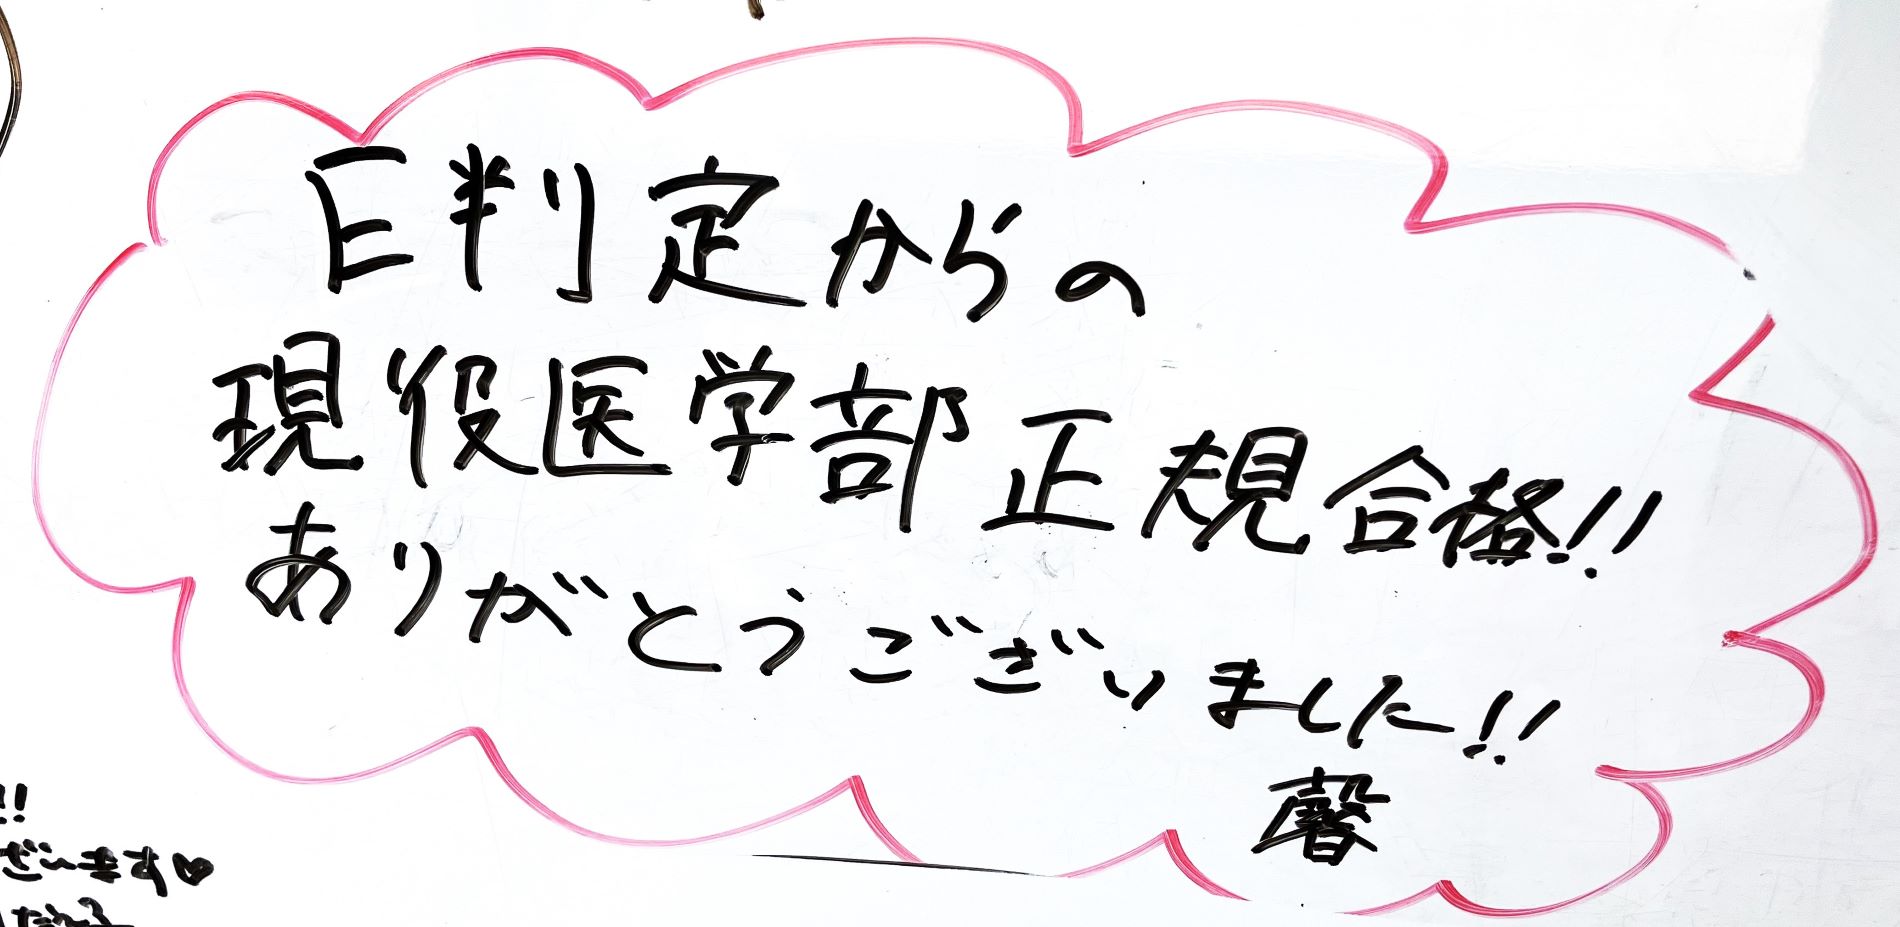 E判定からの
現役医学部正規合格!!
ありがとうございました!!
馨
!!
ざいます♡